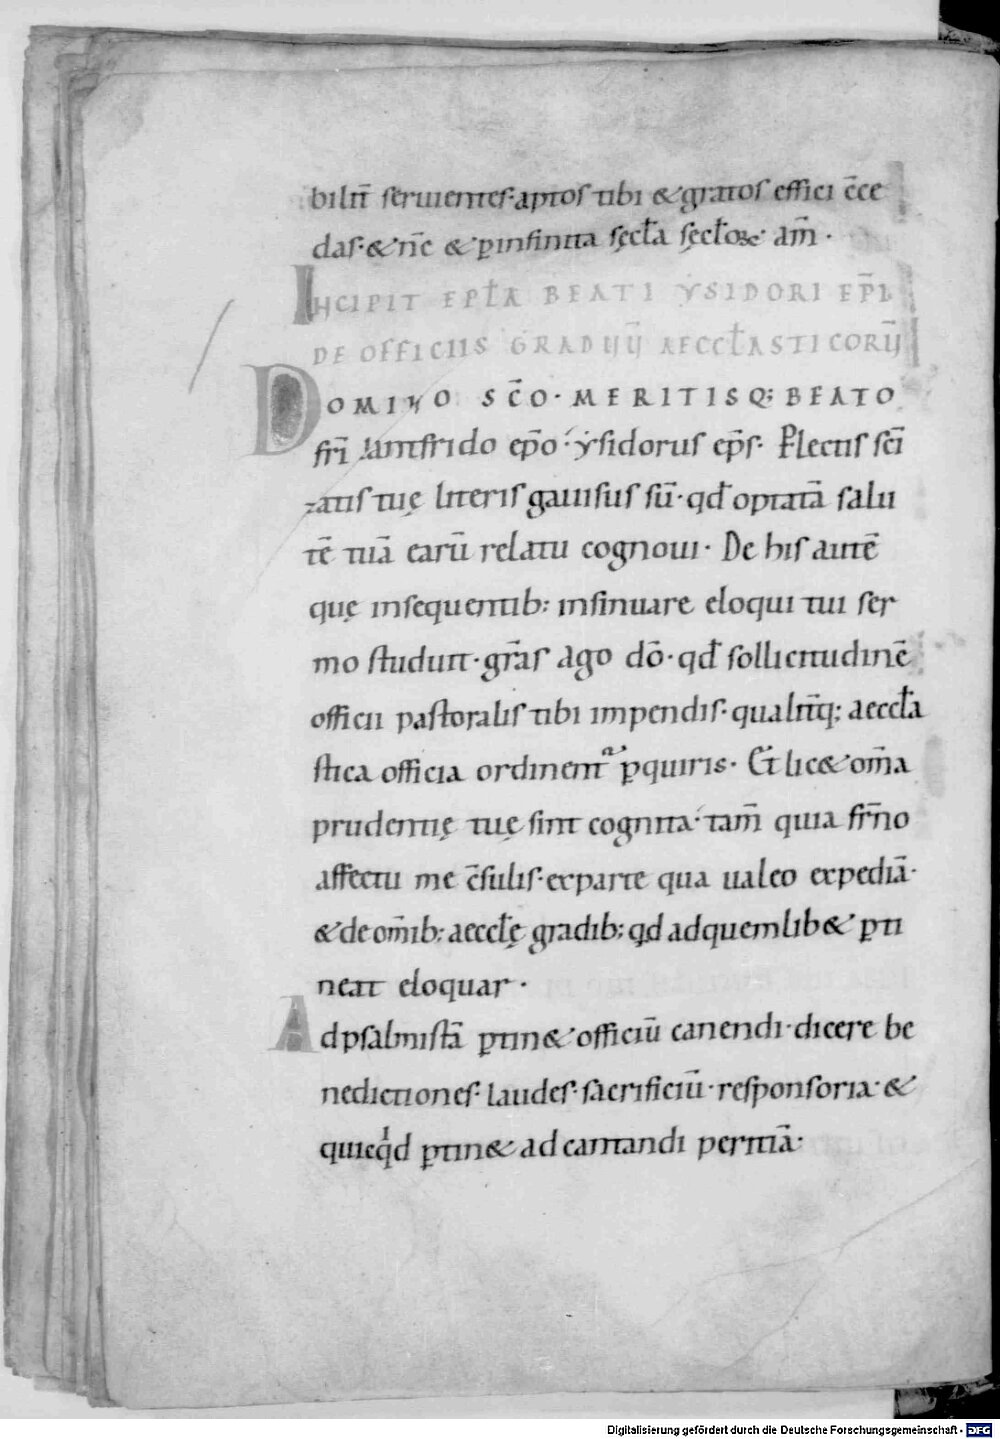 bilit̄ seruientes·aptos tibi & gratos effici c̄ce
das·& n̄c & ꝑ infinita sęcl̄a sęcl̄oꝝ· am̄·
INCIPIT EPL̄A BEATI YSIDORI EP̄I
DE OFFICIIS GRADUŪ AECCL̄ASTICORŪ
DOMINO SC̄O· MERITISQ; BEATO
fr̄i lantfrido ep̄o· ysidorus ep̄s· Plectis sc̄i
tatis tuę literis gauisus sū· qd̄ optatā salu
tē tuā earū relatu cognoui· De his autē
quę insequentib; insinuare eloqui tui ser
mo studuit· gr̄as ago dō· qd̄ sollicitudinē
officii pastoralis tibi impendis· qualit̄q; aeccl̄a
stica officia ordinent᷑ ꝑquiris· Et lic& om̄a
prudentię tuę sint cognita· tam̄ quia fr̄no
affectu me c̄sulis· ex parte qua ualeo expediā·
& de om̄ib; aeccl̄ę gradib; qd adquemlib& ꝑti
neat eloquar·
Ad psalmistā ꝑtin& officiū canendi· dicere be
nedictiones· laudes· sacrificiū· responsoria· &
quicqͥd ꝑtin& ad cantandi peritiā·
Digitalisierung gefördert durch die Deutsche Forschungsgemeinschaft - DFG